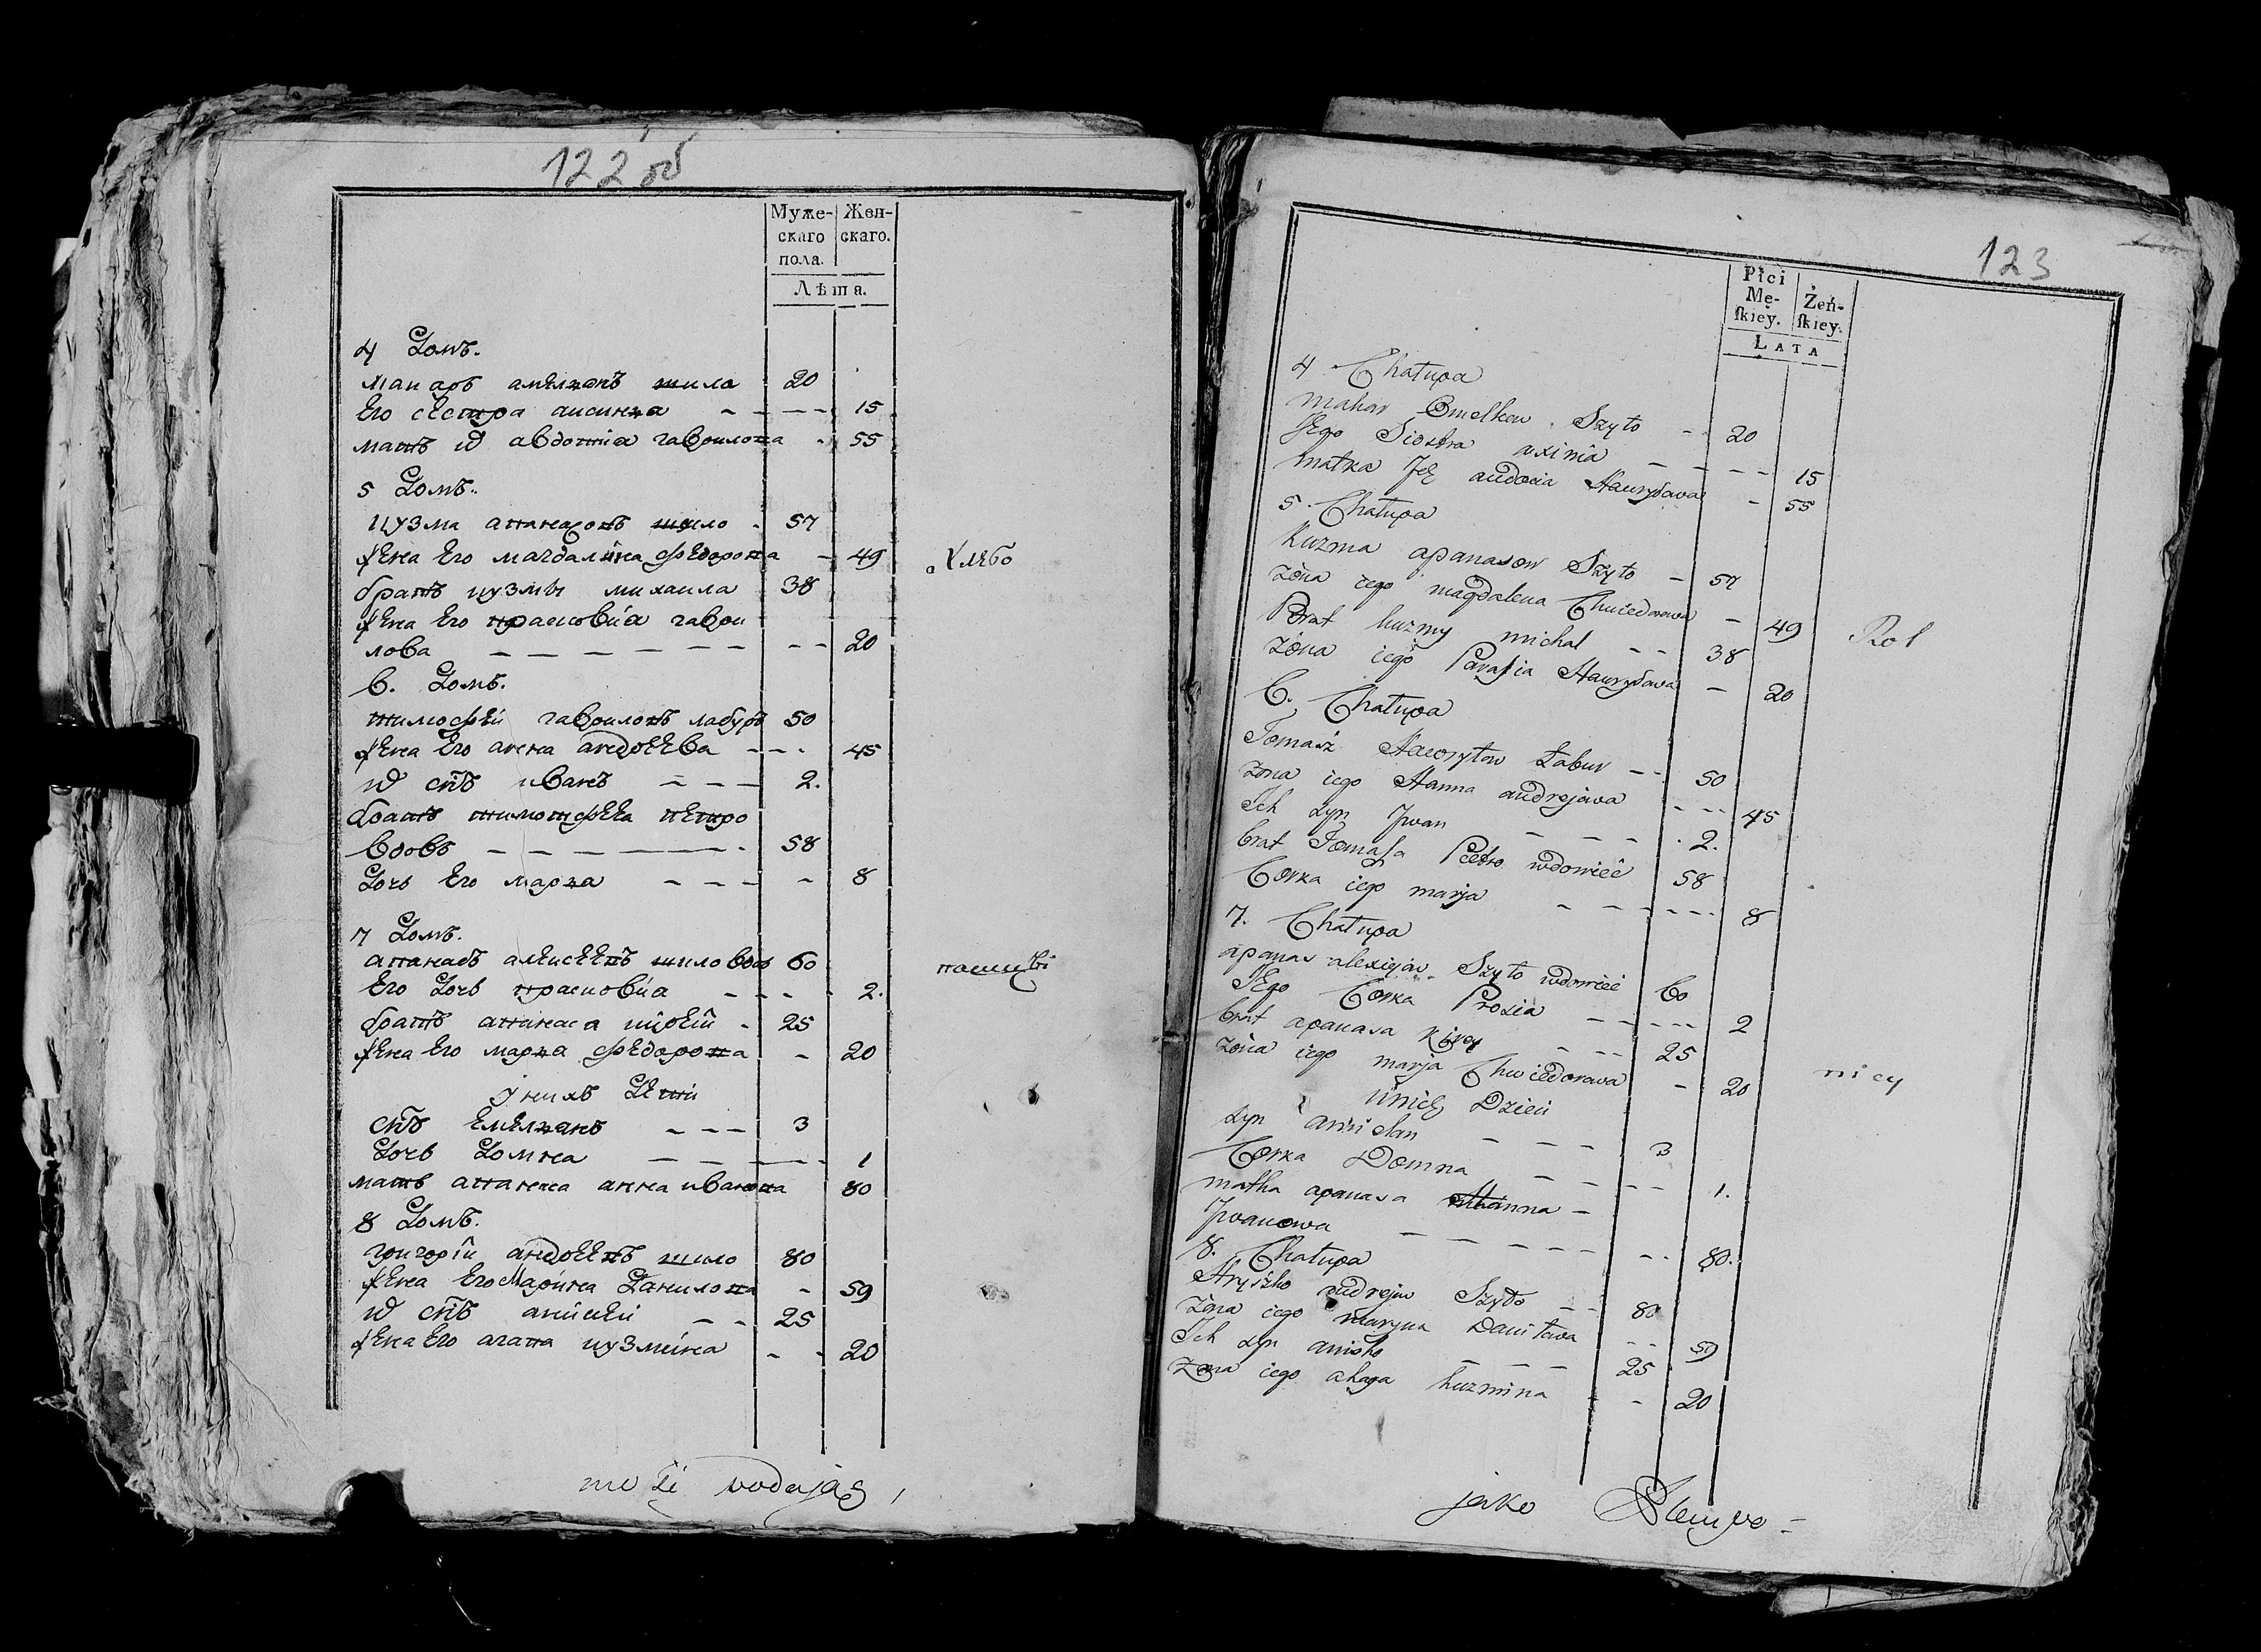 122 об
Муже-
скаго
пола.
Жен-
скаго.
Лѣта.
4 Домъ.
Макаръ амелянов шило 20
Его сестра аксиния 15
мать их авдотия гаврилова 55
5 Домъ.
кузма апанасовъ шило 57
жена Его магдалина федорова 49
братъ кузмы михаила 38
жена Его прасковия гаври
лова 20
6. Домъ.
тимофей гавриловъ лабуръ 50
жена Его анна андреева 45
их снъ иванъ 2.
братъ тимотфея петро
вдовъ 58
дочь Его маря 8
7 Домъ.
апанасъ алексеевъ шило вдов 60
Его дочь прасковия 2.
братъ апанаса кирей 25
жена Его маря федорова 20
у них дети
снъ Емелянъ 3
дочь домна 1
мать апанаса анна иванова 80
8 Домъ.
григорий андреевъ шило 80
жена Его Марина данилова 59
их снъ аникей 25
жена Его агапа кузмина 20
хлѣбо
пашцы
123
Płci
Mę-
ſkiey.
Żeń-
ſkiey.
LATA
4 Chałupa
Makar Omelkow Szyło 20
Jego Siostra axinia 15
Matka Jch audocia Hawryłowa 55
5. Chałupa
Kuzma apanasow Szyło 57
Żona iego magdalena Chwiedorowa 49
Brat kuzmy michał 38
Żona iego Parasia Hawryłowa 20
6. Chałupa
Tomasz Haworyłow Łabur 50
Żona iego Hanna andrejowa 45
Ich syn Jwan 2.
brat Tomasza Piotro wdowiec 58
Corka iego marja 8
7. Chałupa
apanas alexiejow Szyło wdowiec 60
Jego Corka Proxia 2
brat apanasa Kirey 25
Żona iego marja Chwiedorowa 20
u nich Dzieci
syn 3
Corka Domna 1.
matka apanasa Hanna
Jwanowa 80.
8. Chałupa
Hryszko andrejow Szyło 80
Żona iego maryna Daniłowa 59
Ich syn anisko 25
Żona iego ahapa kuzmina 20
Rol
nicy
jako